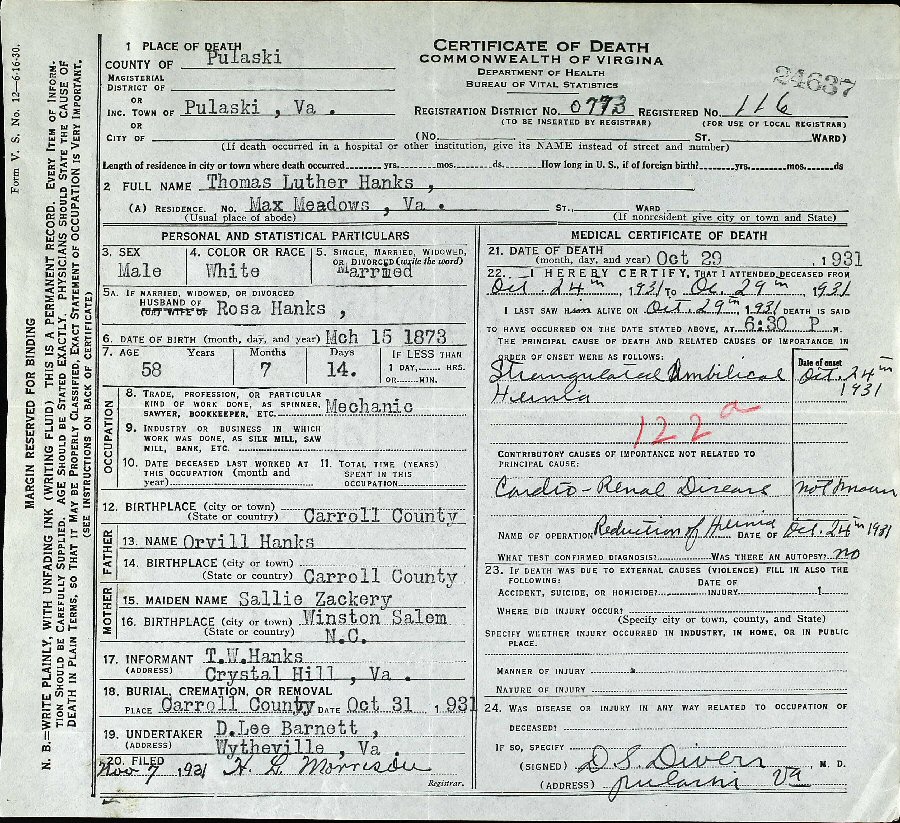 Form V. S. No. 12—6-16-30.
MARGIN RESERVED FOR BINDING
N. B.=WRITE PLAINLY, WITH UNFADING INK (WRITING FLUID) THIS IS A PERMANENT RECORD. EVERY ITEM OF INFORM-
TION SHOULD BE CAREFULLY SUPPLIED. AGE SHOULD BE STATED EXACTLY. PHYSICIANS SHOULD STATE THE CAUSE OF
DEATH IN PLAIN TERMS, SO THAT IT MAY BE PROPERLY CLASSIFIED. EXACT STATEMENT OF OCCUPATION IS VERY IMPORTANT.
(SEE INSTRUCTIONS ON BACK OF CERTIFICATE)
1 PLACE OF DEATH
COUNTY OF Pulaski
MAGISTERIAL
DISTRICT OF
OR
INC. TOWN OF Pulaski , Va .
OR
CITY OF
CERTIFICATE OF DEATH
COMMONWEALTH OF VIRGINIA
DEPARTMENT OF HEALTH
BUREAU OF VITAL STATISTICS
24637
REGISTRATION DISTRICT NO. 0773 REGISTERED NO. 116
(TO BE INSERTED BY REGISTRAR) (FOR USE OF LOCAL REGISTRAR)
(NO. ST. WARD)
(If death occurred in a hospital or other institution, give its NAME instead of street and number)
Length of residence in city or town where death occurred yrs. mos. ds. How long in U. S., if of foreign birth? yrs. mos. ds
2 FULL NAME Thomas Luther Hanks ,
(A) RESIDENCE. NO. Max Meadows , Va . ST., WARD
(Usual place of abode) (If nonresident give city or town and State)
PERSONAL AND STATISTICAL PARTICULARS
3. SEX
Male
4. COLOR OR RACE
White
5. SINGLE, MARRIED, WIDOWED,
OR DIVORCED (write the word)
Married
5A. IF MARRIED, WIDOWED, OR DIVORCED
HUSBAND OF
(OR) WIFE OF Rosa Hanks ,
6. DATE OF BIRTH (month, day, and year) Mch 15 1873
7. AGE Years Months Days IF LESS THAN
58 7 14. 1 DAY, HRS.
OR MIN.
OCCUPATION
8. TRADE, PROFESSION, OR PARTICULAR
KIND OF WORK DONE, AS SPINNER,
SAWYER, BOOKKEEPER, ETC. Mechanic
9. INDUSTRY OR BUSINESS IN WHICH
WORK WAS DONE, AS SILK MILL, SAW
MILL, BANK, ETC.
10. DATE DECEASED LAST WORKED AT
THIS OCCUPATION (month and
year)
11. TOTAL TIME (YEARS)
SPENT IN THIS
OCCUPATION
12. BIRTHPLACE (city or town)
(State or country) Carroll County
FATHER
13. NAME Orvill Hanks
14. BIRTHPLACE (city or town)
(State or country) Carroll County
MOTHER
15. MAIDEN NAME Sallie Zackery
16. BIRTHPLACE (city or town) Winston Salem
(State or country) N.C.
17. INFORMANT T.W.Hanks
(ADDRESS) Crystal Hill , Va .
18. BURIAL, CREMATION, OR REMOVAL
PLACE Carroll County DATE Oct 31 , 1931
19. UNDERTAKER D.Lee Barnett ,
(ADDRESS) Wytheville , Va .
20. FILED
Nov 7 1931 H. L. Morrison
Registrar.
MEDICAL CERTIFICATE OF DEATH
21. DATE OF DEATH
(month, day, and year) Oct 29 , 1931
22. I HEREBY CERTIFY, THAT I ATTENDED DECEASED FROM
Oct. 24th, 1931 TO Oc. 29th, 1931
I LAST SAW HIM ALIVE ON Oct. 29th, 1931 DEATH IS SAID
TO HAVE OCCURRED ON THE DATE STATED ABOVE, AT 6:30 P M.
THE PRINCIPAL CAUSE OF DEATH AND RELATED CAUSES OF IMPORTANCE IN
ORDER OF ONSET WERE AS FOLLOWS:
Date of onset
Strangulated Umbilical Oct. 24th
Hernia 1931
122a
CONTRIBUTORY CAUSES OF IMPORTANCE NOT RELATED TO
PRINCIPAL CAUSE:
Cardio-Renal Disease not known
NAME OF OPERATION Reduction of Hernia DATE OF Oct. 24th 1931
WHAT TEST CONFIRMED DIAGNOSIS? WAS THERE AN AUTOPSY? no
23. IF DEATH WAS DUE TO EXTERNAL CAUSES (VIOLENCE) FILL IN ALSO THE
FOLLOWING: DATE OF
ACCIDENT, SUICIDE, OR HOMICIDE? INJURY 1
WHERE DID INJURY OCCUR?
(Specify city or town, county, and State)
SPECIFY WHETHER INJURY OCCURRED IN INDUSTRY, IN HOME, OR IN PUBLIC
PLACE.
MANNER OF INJURY
NATURE OF INJURY
24. WAS DISEASE OR INJURY IN ANY WAY RELATED TO OCCUPATION OF
DECEASED?
IF SO, SPECIFY
(SIGNED) D. S. Divers M. D.
(ADDRESS) Pulaski Va